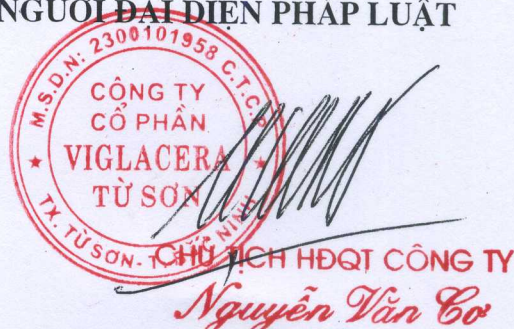 NGƯỜI ĐẠI DIỆN PHÁP LUẬT
M.S.D.N: 2300101958 C.T.C.P
CÔNG TY
CỔ PHẦN
VIGLACERA
TỪ SƠN
TX. TỪ SƠN - T. BẮC NINH
CHỦ TỊCH HĐQT CÔNG TY
Nguyễn Văn Cơ